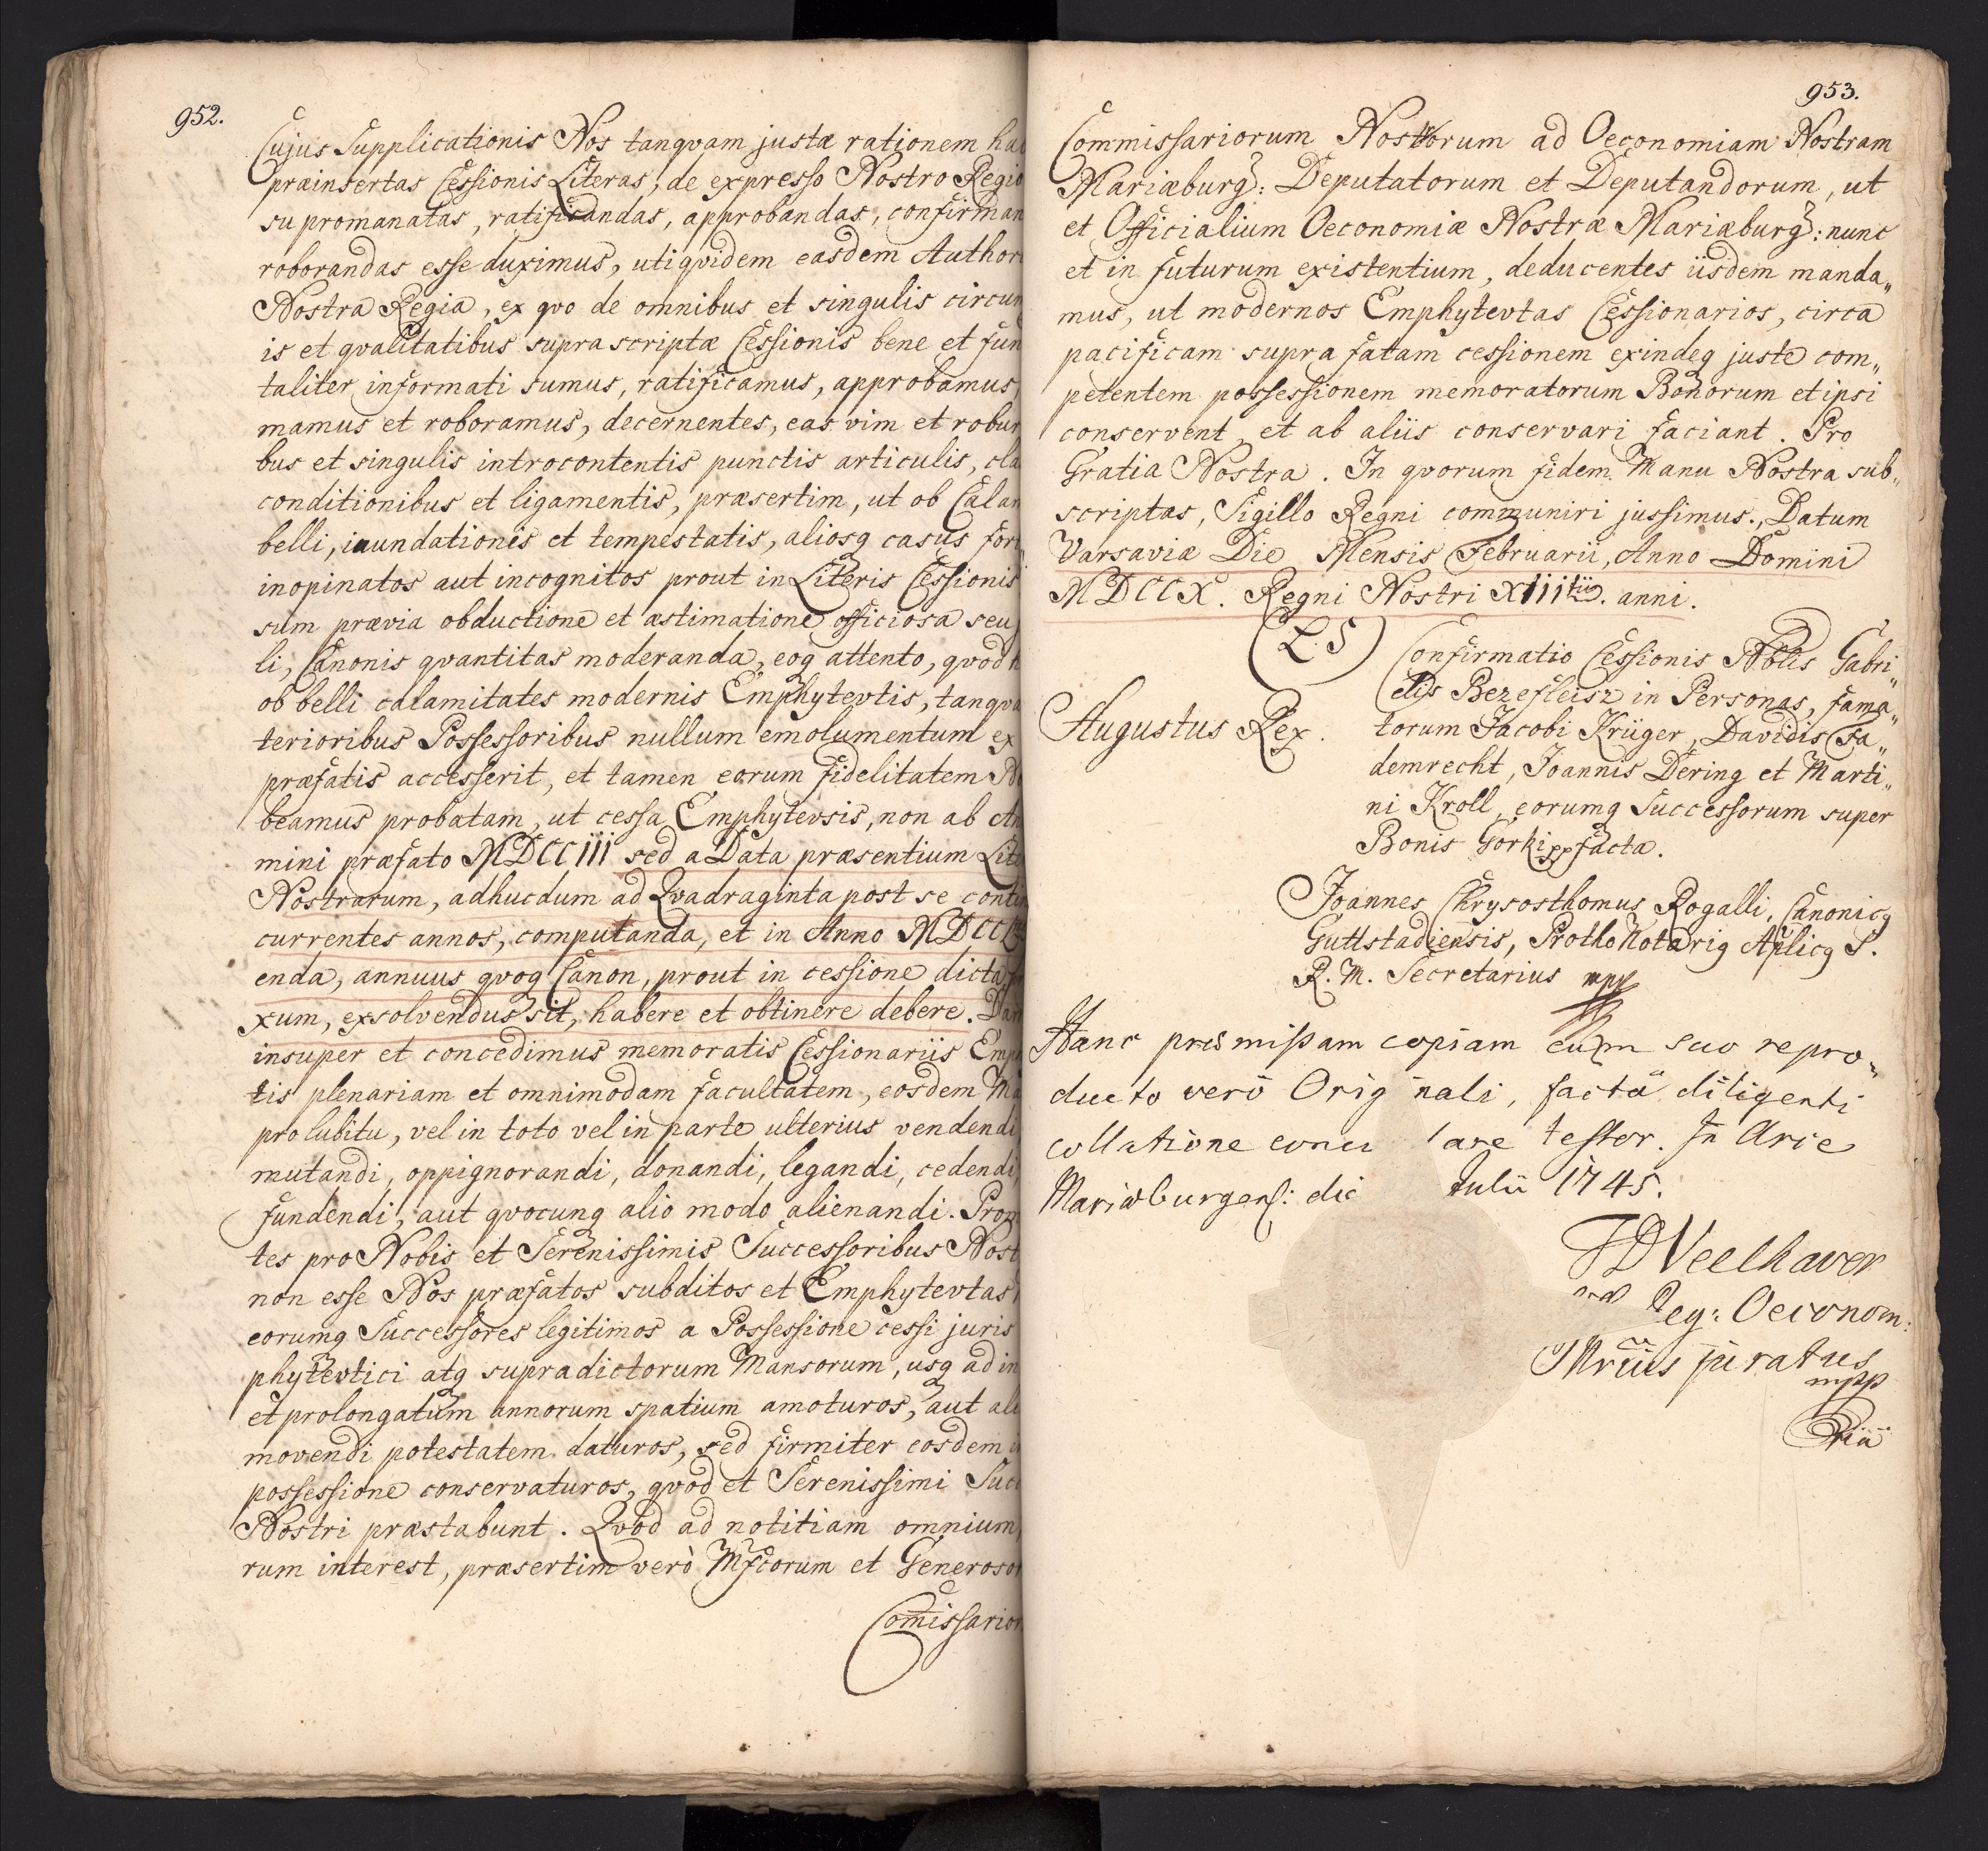 952.
Cujus Supplicationis Nos tanqvam justæ rationem hab
præinsertas Cessionis Literas, de expresso Nostro Regio
su promanatas, ratificandas, approbandas, confirman
roborandas esse duximus, utiqvidem easdem Authori
Nostra Regia, ex qvo de omnibus et singulis circum
is et qvalitatibus suprascriptæ Cessionis bene et fun
taliter informati sumus, ratificamus, approbamus,
mamus et roboramus, decernentes, eas vim et robur
bus et singulis introcontentis punctis articulis, cla
conditionibus et ligamentis, præsertim, ut ob Calam
belli, inundationis et tempestatis, aliosq casus fort
inopinatos aut incognitos prout in Literis Cessionis
sum prævia obductione et æstimatione officiosa seu
li, Canonis qvantitas moderanda, eoq attento, qvod
ob belli calamitates modernis Emphytevtis, tanqva
terioribus Possessoribus nullum emolumentum ex
præfatis accesserit, et tamen eorum fidelitatem No
beamus probatam, ut cessa Emphytevsis, non ab An
mini præfato MDCCIII sed a Data præsentium Lite
Nostrarum, adhucdum ad Qvadraginta post se contin
currentes annos, computanda, et in Anno MDCCL
enda, annuus qvoq Canon, prout in cessione dicta
xum, exsolvendus sit, habere et obtinere debere. Dam
insuper et concedimus memoratis Cessionariis Emph
tis plenariam et omnimodam facultatem, eosdem Ma
pro lubitu, vel in toto vel in parte ulterius vendendi
mutandi, oppignorandi, donandi, legandi, cedendi,
fundendi, aut qvocunq alio modo alienandi. Prom
tes pro Nobis et Serenissimis Successoribus Nost
non esse Nos præfatos subditos et Emphytevtas
eorumq Successores legitimos a Possessione cessi juris
phytevtici atq supradictorum Mansorum, usq ad in
et prolongatum annorum spatium amoturos, aut ali
movendi potestatem daturos, sed firmiter eosdem i
possessione conservaturos, qvod et Serenissimi Succ
Nostri præstabunt. Qvod ad notitiam omnium
rum interest, præsertim verò Mfcorum et Generosor
Comissarior
953.
Commissariorum Nostrorum ad Oeconomiam Nostram
Mariæburg: Deputatorum et Deputandorum, ut
et Officialium Oeconomiæ Nostræ Mariæburg: nunc
et in futurum existentium, deducentes iisdem manda„
mus, ut modernos Emphytevtas Cessionarios, circa
pacificam supra fatam cessionem exindeq juste com„
petentem possessionem memoratorum Bonorum et ipsi
conservent, et ab aliis conservari faciant. Pro
Gratia Nostra. In qvorum fidem Manu Nostra sub„
scriptas, Sigillo Regni communiri jussimus. Datum
Varsaviæ Die Mensis Februarii, Anno Domini
MDCCX. Regni Nostri XIII tii. anni.
(L. S)
Confirmatio Cessionis Nblis Gabri„
elis Bezefleisz in Personas, fama„
Augustus Rex. torum Jacobi Krüger, Davidis Fa„
demrecht, Joannis Dering et Marti„
ni Kroll, eorumq Successorum super
Bonis Gorki facta.
Joannes Chrysosthomus Rogalli, Canonicq
Guttstadiensis, ProthoNotariq Aplicq S.
R. M. Secretarius mpp
Hanc præmissam copiam cum suo repro„
ducto verò Originali, factâ diligenti
collatione testor. In Arce
Mariæburgens: die Julii 1745.
Reg: Oeconom:
juratus
mpp